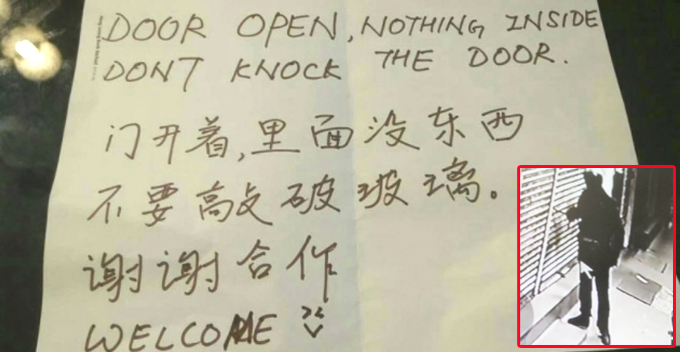 DOOR OPEN, NOTHING INSIDE
DONT KNOCK THE DOOR.
门开着,里面没东西
不要敲破玻璃。
谢谢合作
WELCOME